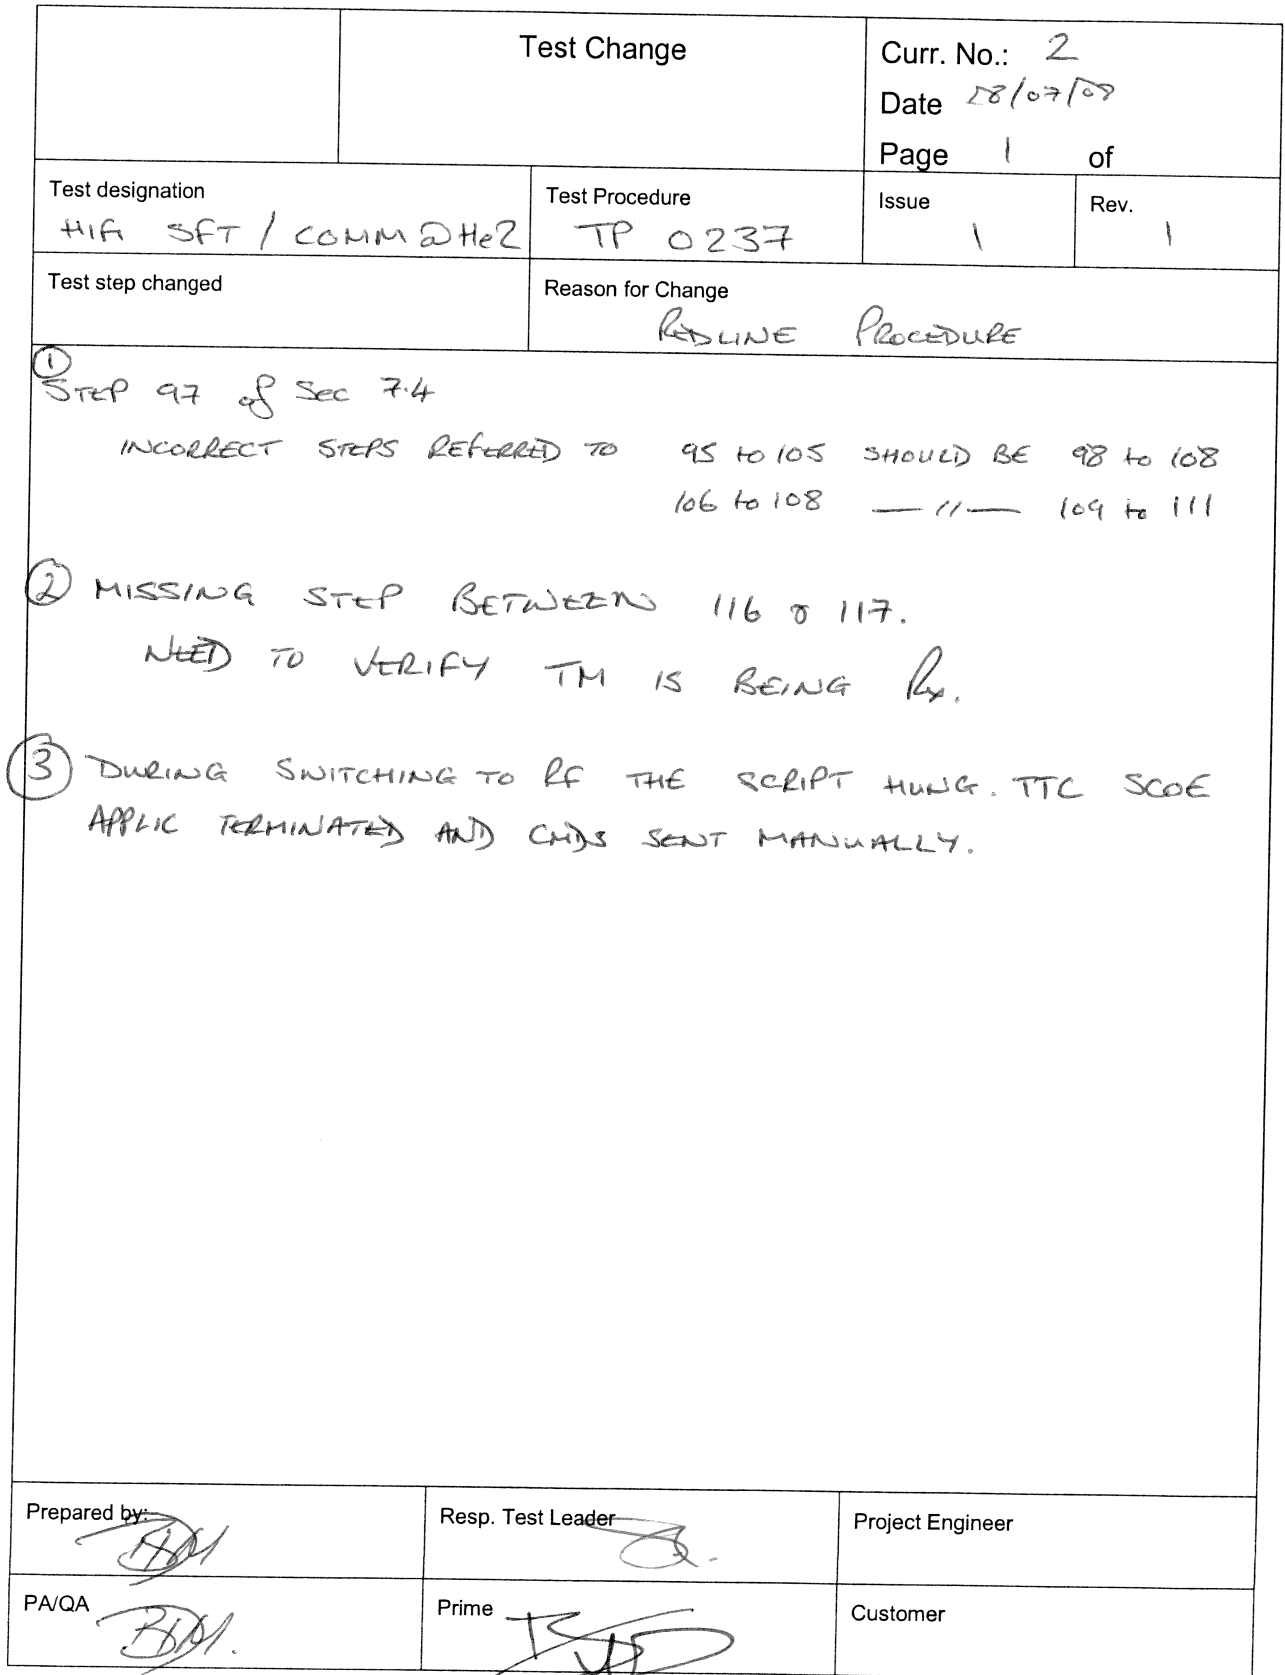 Test Change
Curr. No.: 2
Date 28/07/08
Page 1 of
Test designation
HIFI SFT / COMM @ He2
Test Procedure
TP 0237
Issue
1
Rev.
1
Test step changed
Reason for Change
REDLINE PROCEDURE
① STEP 97 of Sec 7.4
INCORRECT STEPS REFERRED TO 95 to 105 SHOULD BE 98 to 108
106 to 108 —//— 109 to 111
② MISSING STEP BETWEEN 116 & 117.
NEED TO VERIFY TM IS BEING Rx.
③ DURING SWITCHING TO RF THE SCRIPT HUNG. TTC SCOE
APPLIC TERMINATED AND CMDS SENT MANUALLY.
Prepared by:
Resp. Test Leader
Project Engineer
PA/QA
Prime
Customer